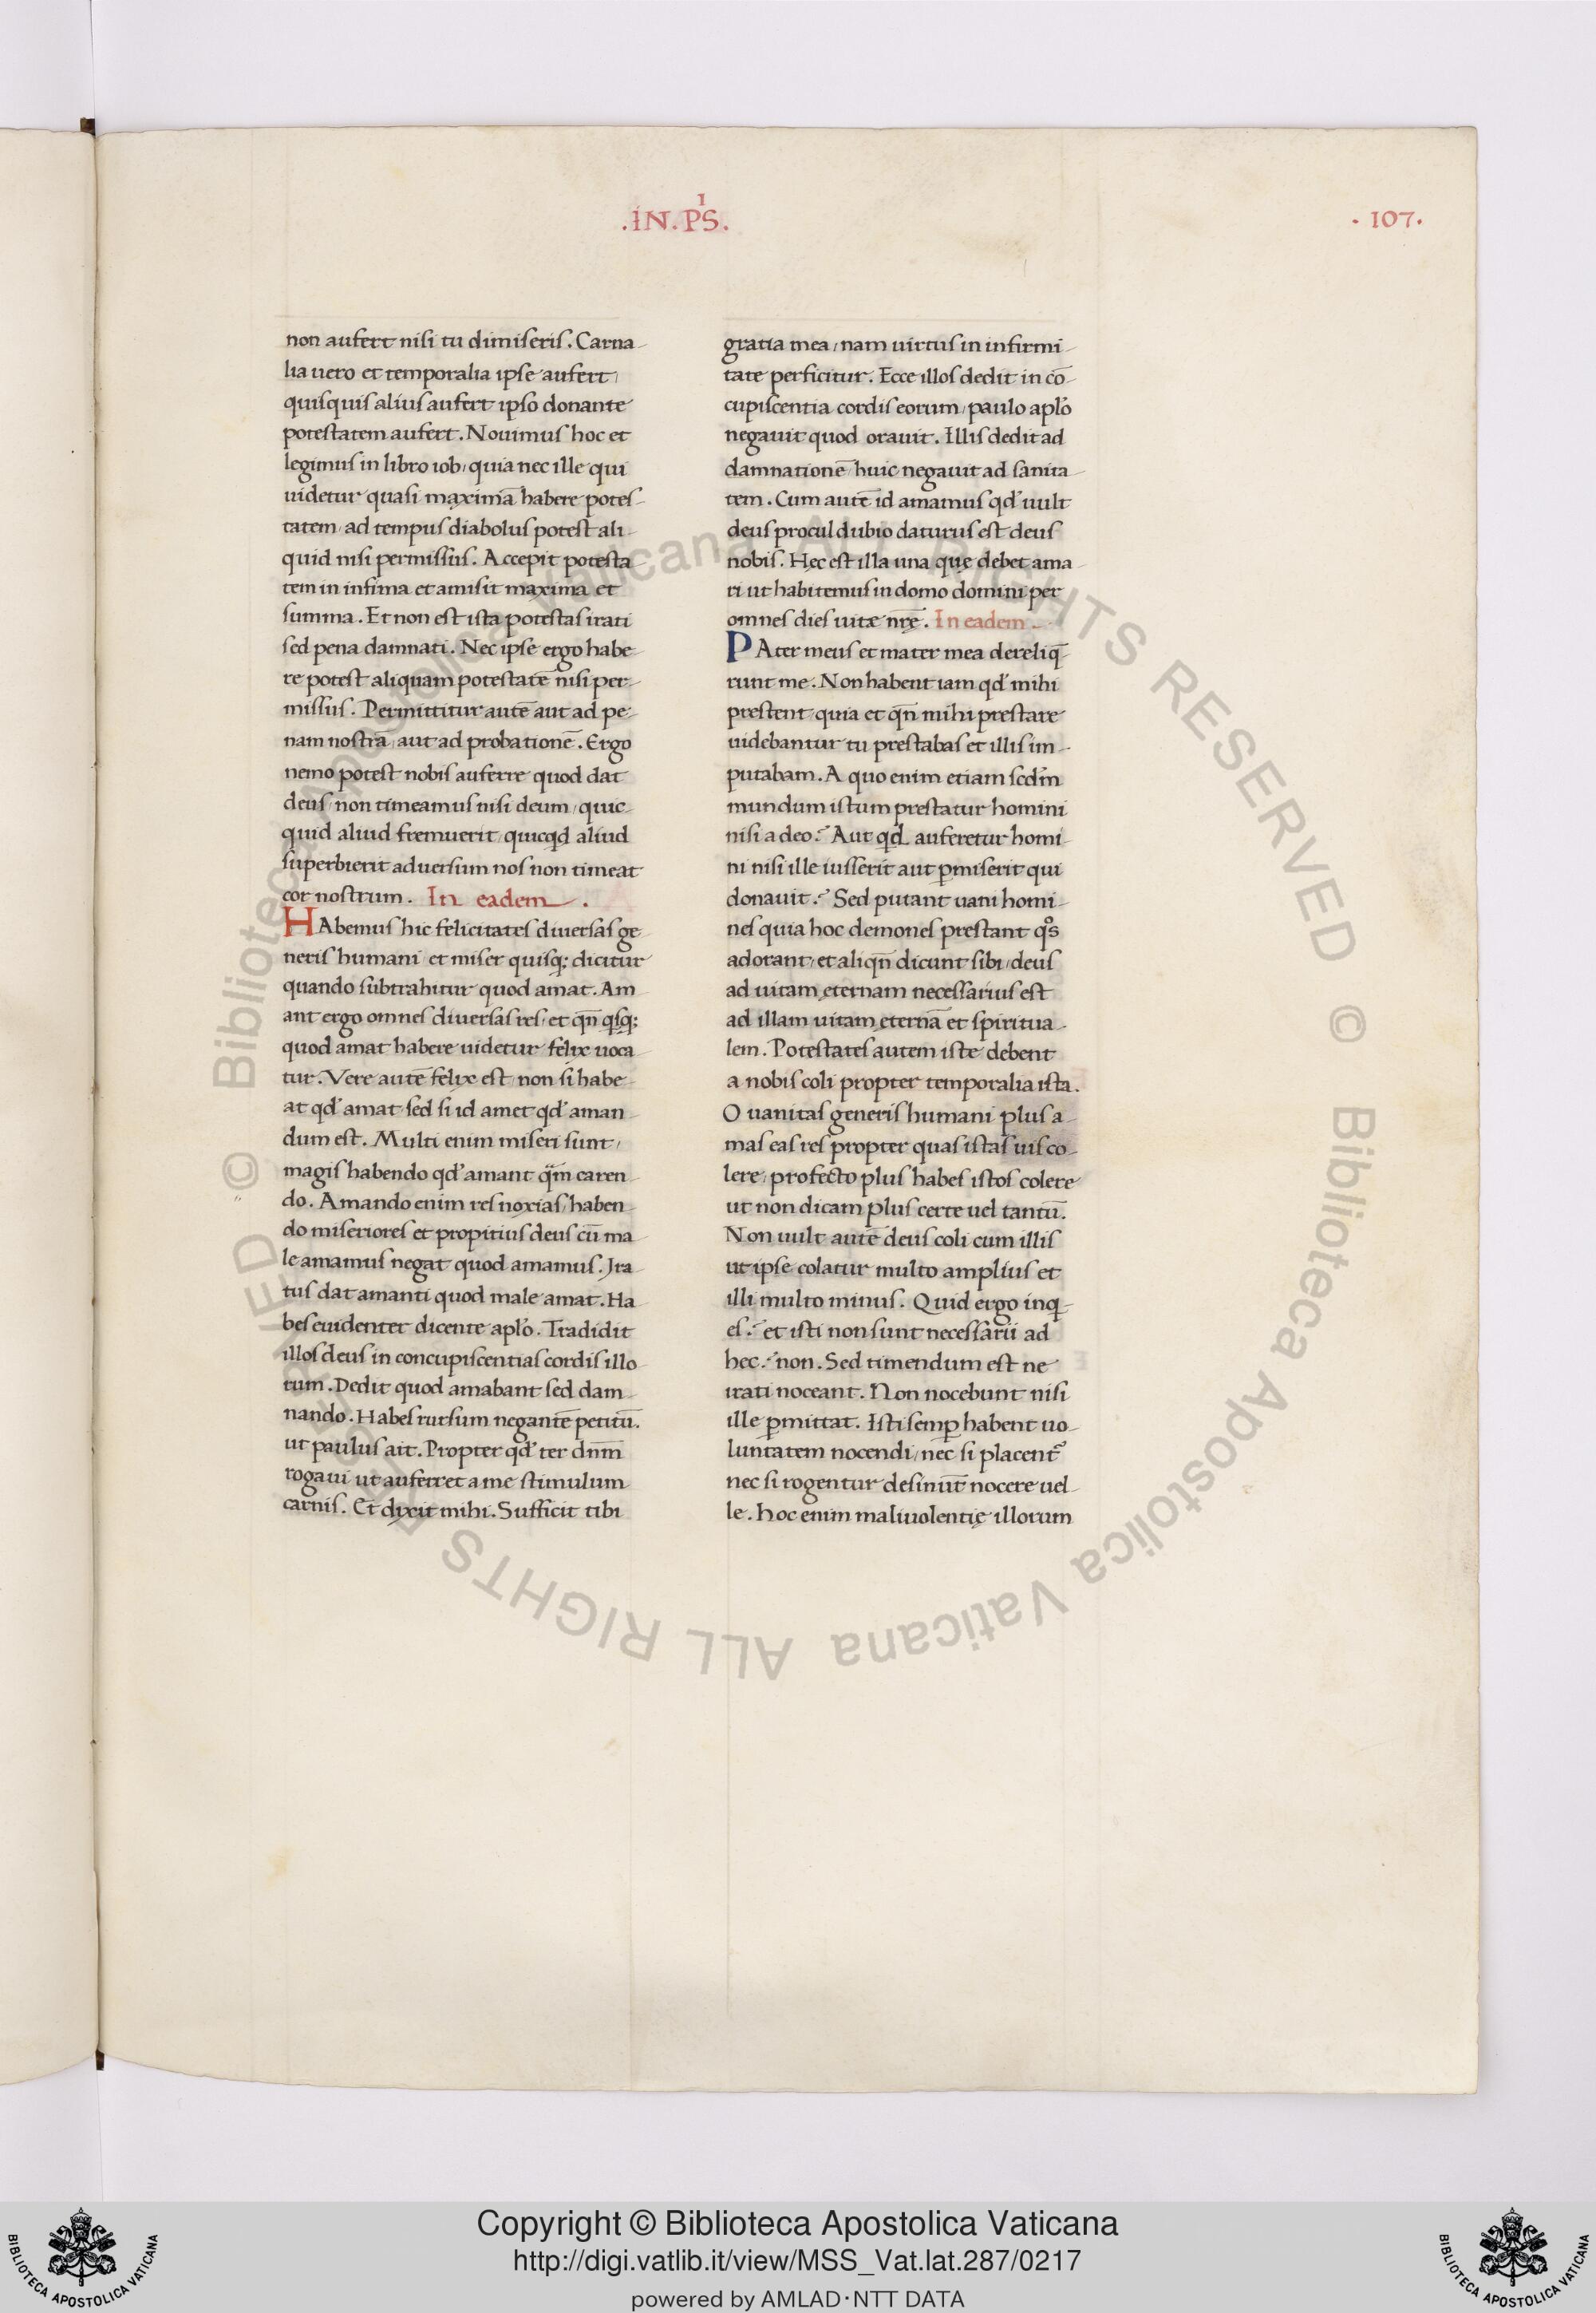 .IN. PS̍.
· 107.
non aufert nisi tu dimiseris. Carna-
lia uero et temporalia ipse aufert,
quisquis alius aufert ipso donante
potestatem aufert. Nouimus hoc et
legimus in libro iob, quia nec ille qui
uidetur quasi maximā habere potes-
tatem, ad tempus diabolus potest ali-
quid nisi permissus. Accepit potesta-
tem in infima et amisit maxima et
summa. Et non est ista potestas irati
sed pena damnati. Nec ipse ergo habe-
re potest aliquam potestatē nisi per-
missus. Permittitur autē aut ad pe-
nam nostrā, aut ad probationē. Ergo
nemo potest nobis auferre quod dat
deus, non timeamus nisi deum, quic-
quid aliud fremuerit, quicqd aliud
superbierit aduersum nos non timeat
cor nostrum. In eadem.
HAbemus hic felicitates diuersas ge-
neris humani, et miser quisq; dicitur
quando subtrahitur quod amat. Am-
ant ergo omnes diuersas res, et qn̄ qsq;
quod amat habere uidetur felix uoca-
tur. Vere autē felix est, non si habe-
at qd' amat sed si id amet qd' aman-
dum est. Multi enim miseri sunt,
magis habendo qd' amant q̈m caren-
do. Amando enim res noxias, haben-
do miseriores et propitius deus cū ma-
le amamus negat quod amamus. Ira-
tus dat amanti quod male amat. Ha-
bes euidenter dicente apl'o. Tradidit
illos deus in concupiscentias cordis illo-
rum. Dedit quod amabant sed dam-
nando. Habes rursum negantē petitū.
ut paulus ait. Propter qd' ter dn̄m
rogaui ut auferret a me stimulum
carnis. Et dixit mihi. Sufficit tibi
gratia mea, nam uirtus in infirmi-
tate perficitur. Ecce illos dedit in cō-
cupiscentia cordis eorum, paulo apl'o
negauit quod orauit. Illis dedit ad
damnationē, huic negauit ad sanita-
tem. Cum autē id amamus qd' uult
deus procul dubio daturus est deus
nobis. Hęc est illa una quę debet ama-
ri ut habitemus in domo domini per
omnes dies uitæ nr̄ę. In eadem.
PAter meus et mater mea dereliq̄-
runt me. Non habent iam qd' mihi
prestent, quia et qn̄ mihi prestare
uidebantur tu prestabas et illis im-
putabam. A quo enim etiam scdm̄
mundum istum prestatur homini
nisi a deo? Aut qd auferetur homi-
ni nisi ille iusserit aut ꝑmiserit qui
donauit? Sed putant uani homi-
nes quia hoc demones prestant qͦs
adorant, et aliqn̄ dicunt sibi, deus
ad uitam ęternam necessarius est
ad illam uitam ęternā et spiritua-
lem. Potestates autem iste debent
a nobis coli propter temporalia ista.
O uanitas generis humani plus a-
mas eas res propter quas istas uis co-
lere, profecto plus habes istos colere
ut non dicam plus certe uel tantū.
Non uult autē deus coli cum illis
ut ipse colatur multo amplius et
illi multo minus. Quid ergo inq-
es? et isti non sunt necessarii ad
hec? non. Sed timendum est ne
irati noceant. Non nocebunt nisi
ille ꝑmittat. Isti semꝑ habent uo-
luntatem nocendi, nec si placent᷑
nec si rogentur desinūt nocere uel-
le. Hoc enim maliuolentię illorum
Copyright © Biblioteca Apostolica Vaticana
http://digi.vatlib.it/view/MSS_Vat.lat.287/0217
powered by AMLAD·NTT DATA